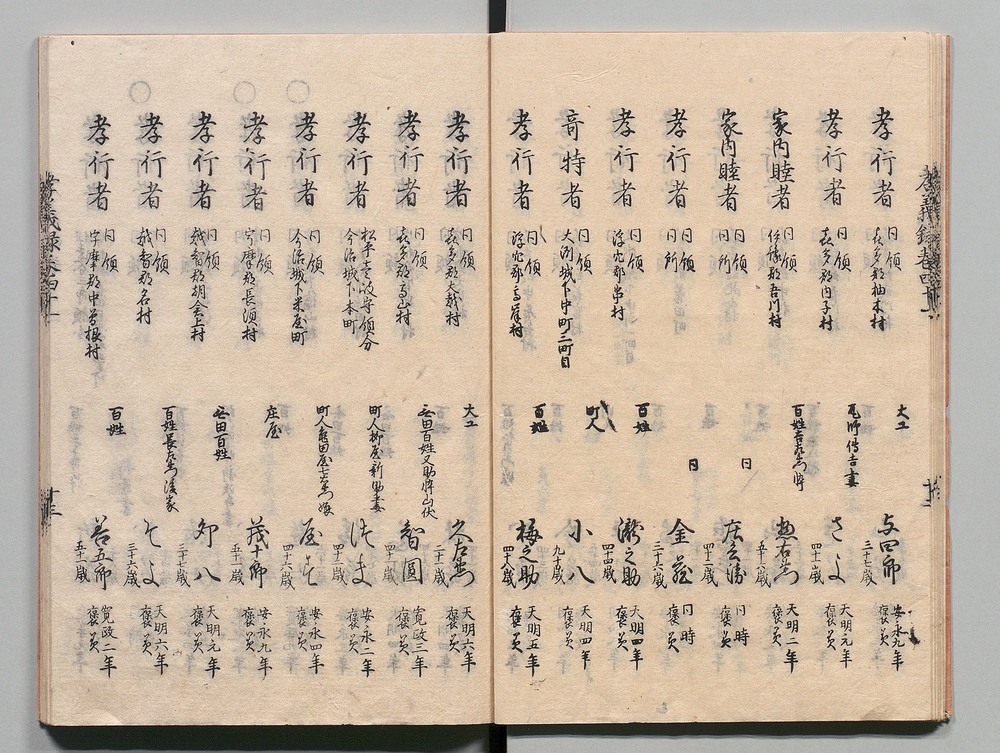 孝行者 同領 喜多郡柚木村 大工 与四郎 三十七歳 安永九年 褒美
孝行者 同領 喜多郡内子村 瓦師傳吉妻 さよ 四十歳 天明元年 褒美
家内睦者 同領 伊豫郡吾川村 百姓 五十六歳 天明二年 褒美
家内睦者 同領 同所 同 四十二歳 同時 褒美
孝行者 同領 同所 同 金蔵 三十六歳 同時 褒美
孝行者 同領 浮穴郡串村 百姓 瀧之助 四十四歳 天明四年 褒美
奇特者 同領 大洲城下中町二町目 町人 小八 九十歳 天明四年 褒美
孝行者 同領 浮穴郡 百姓 梅之助 四十八歳 天明五年 褒美
孝行者 同領 喜多郡大瀬村 大工 二十歳 天明六年 褒美
孝行者 同領 喜多郡 村 智圓 四十四歳 寛政三年 褒美
孝行者 松平壱岐守領分 今治城下本町 町人柳屋新助妻 四十一歳 安永二年 褒美
孝行者 同領 今治城下米屋町 四十六歳 安永四年 褒美
孝行者 同領 宇摩郡長須村 庄屋 茂十郎 五十一歳 安永九年 褒美
孝行者 同領 越智郡朝倉上村 無田百姓 卯八 三十七歳 天明元年 褒美
孝行者 同領 越智郡名村 そよ 三十六歳 天明六年 褒美
孝行者 同領 宇摩郡中曽根村 百姓 善五郎 五十一歳 寛政二年 褒美